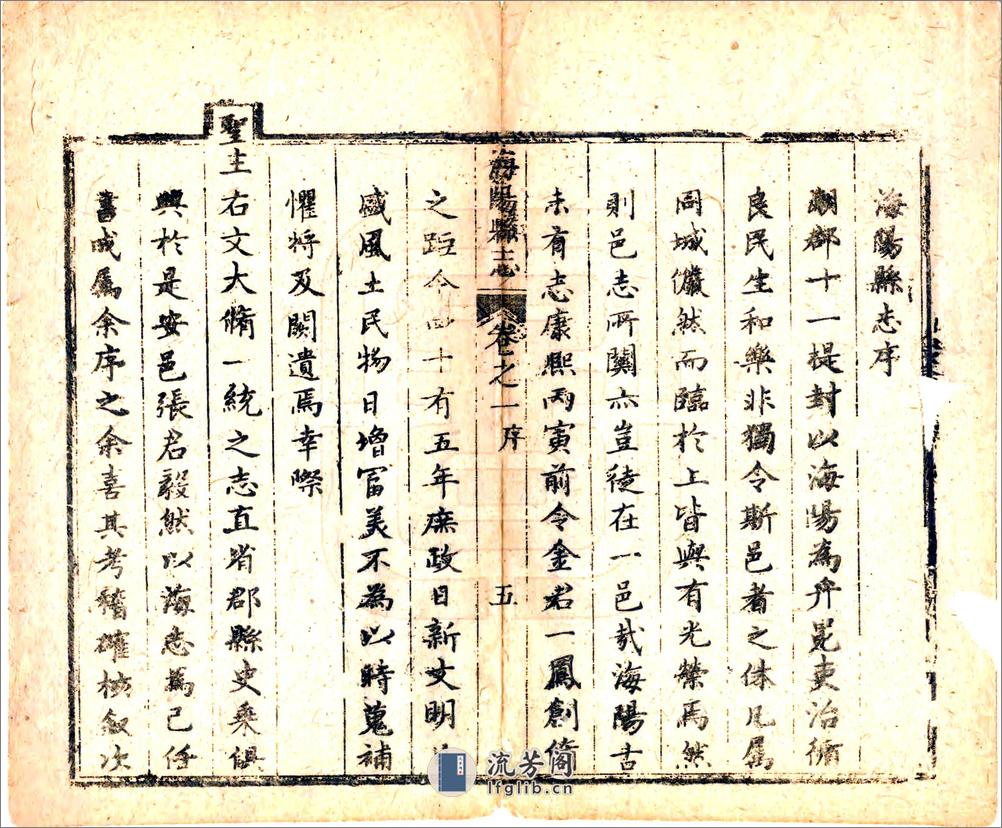 海陽縣志序
潮郡十一提封以海陽為弁冕吏治循
良民生和樂非獨令斯邑者之休凡屬
同城儼然而臨於上皆與有光榮焉然
則邑志所關亦豈徒在一邑哉海陽古
未有志康熙丙寅前令金君一鳳創脩
海陽縣志 卷之一 序 五
之距今四十有五年庶政日新文明
盛風土民物日增富美不為以時蒐補
懼將及闕遺焉幸際
聖主右文大脩一統之志直省郡縣史乘俱
興於是安邑張君毅然以海志為己任
書成屬余序之余喜其考稽確核敘次
流芳阁
lfglib.cn